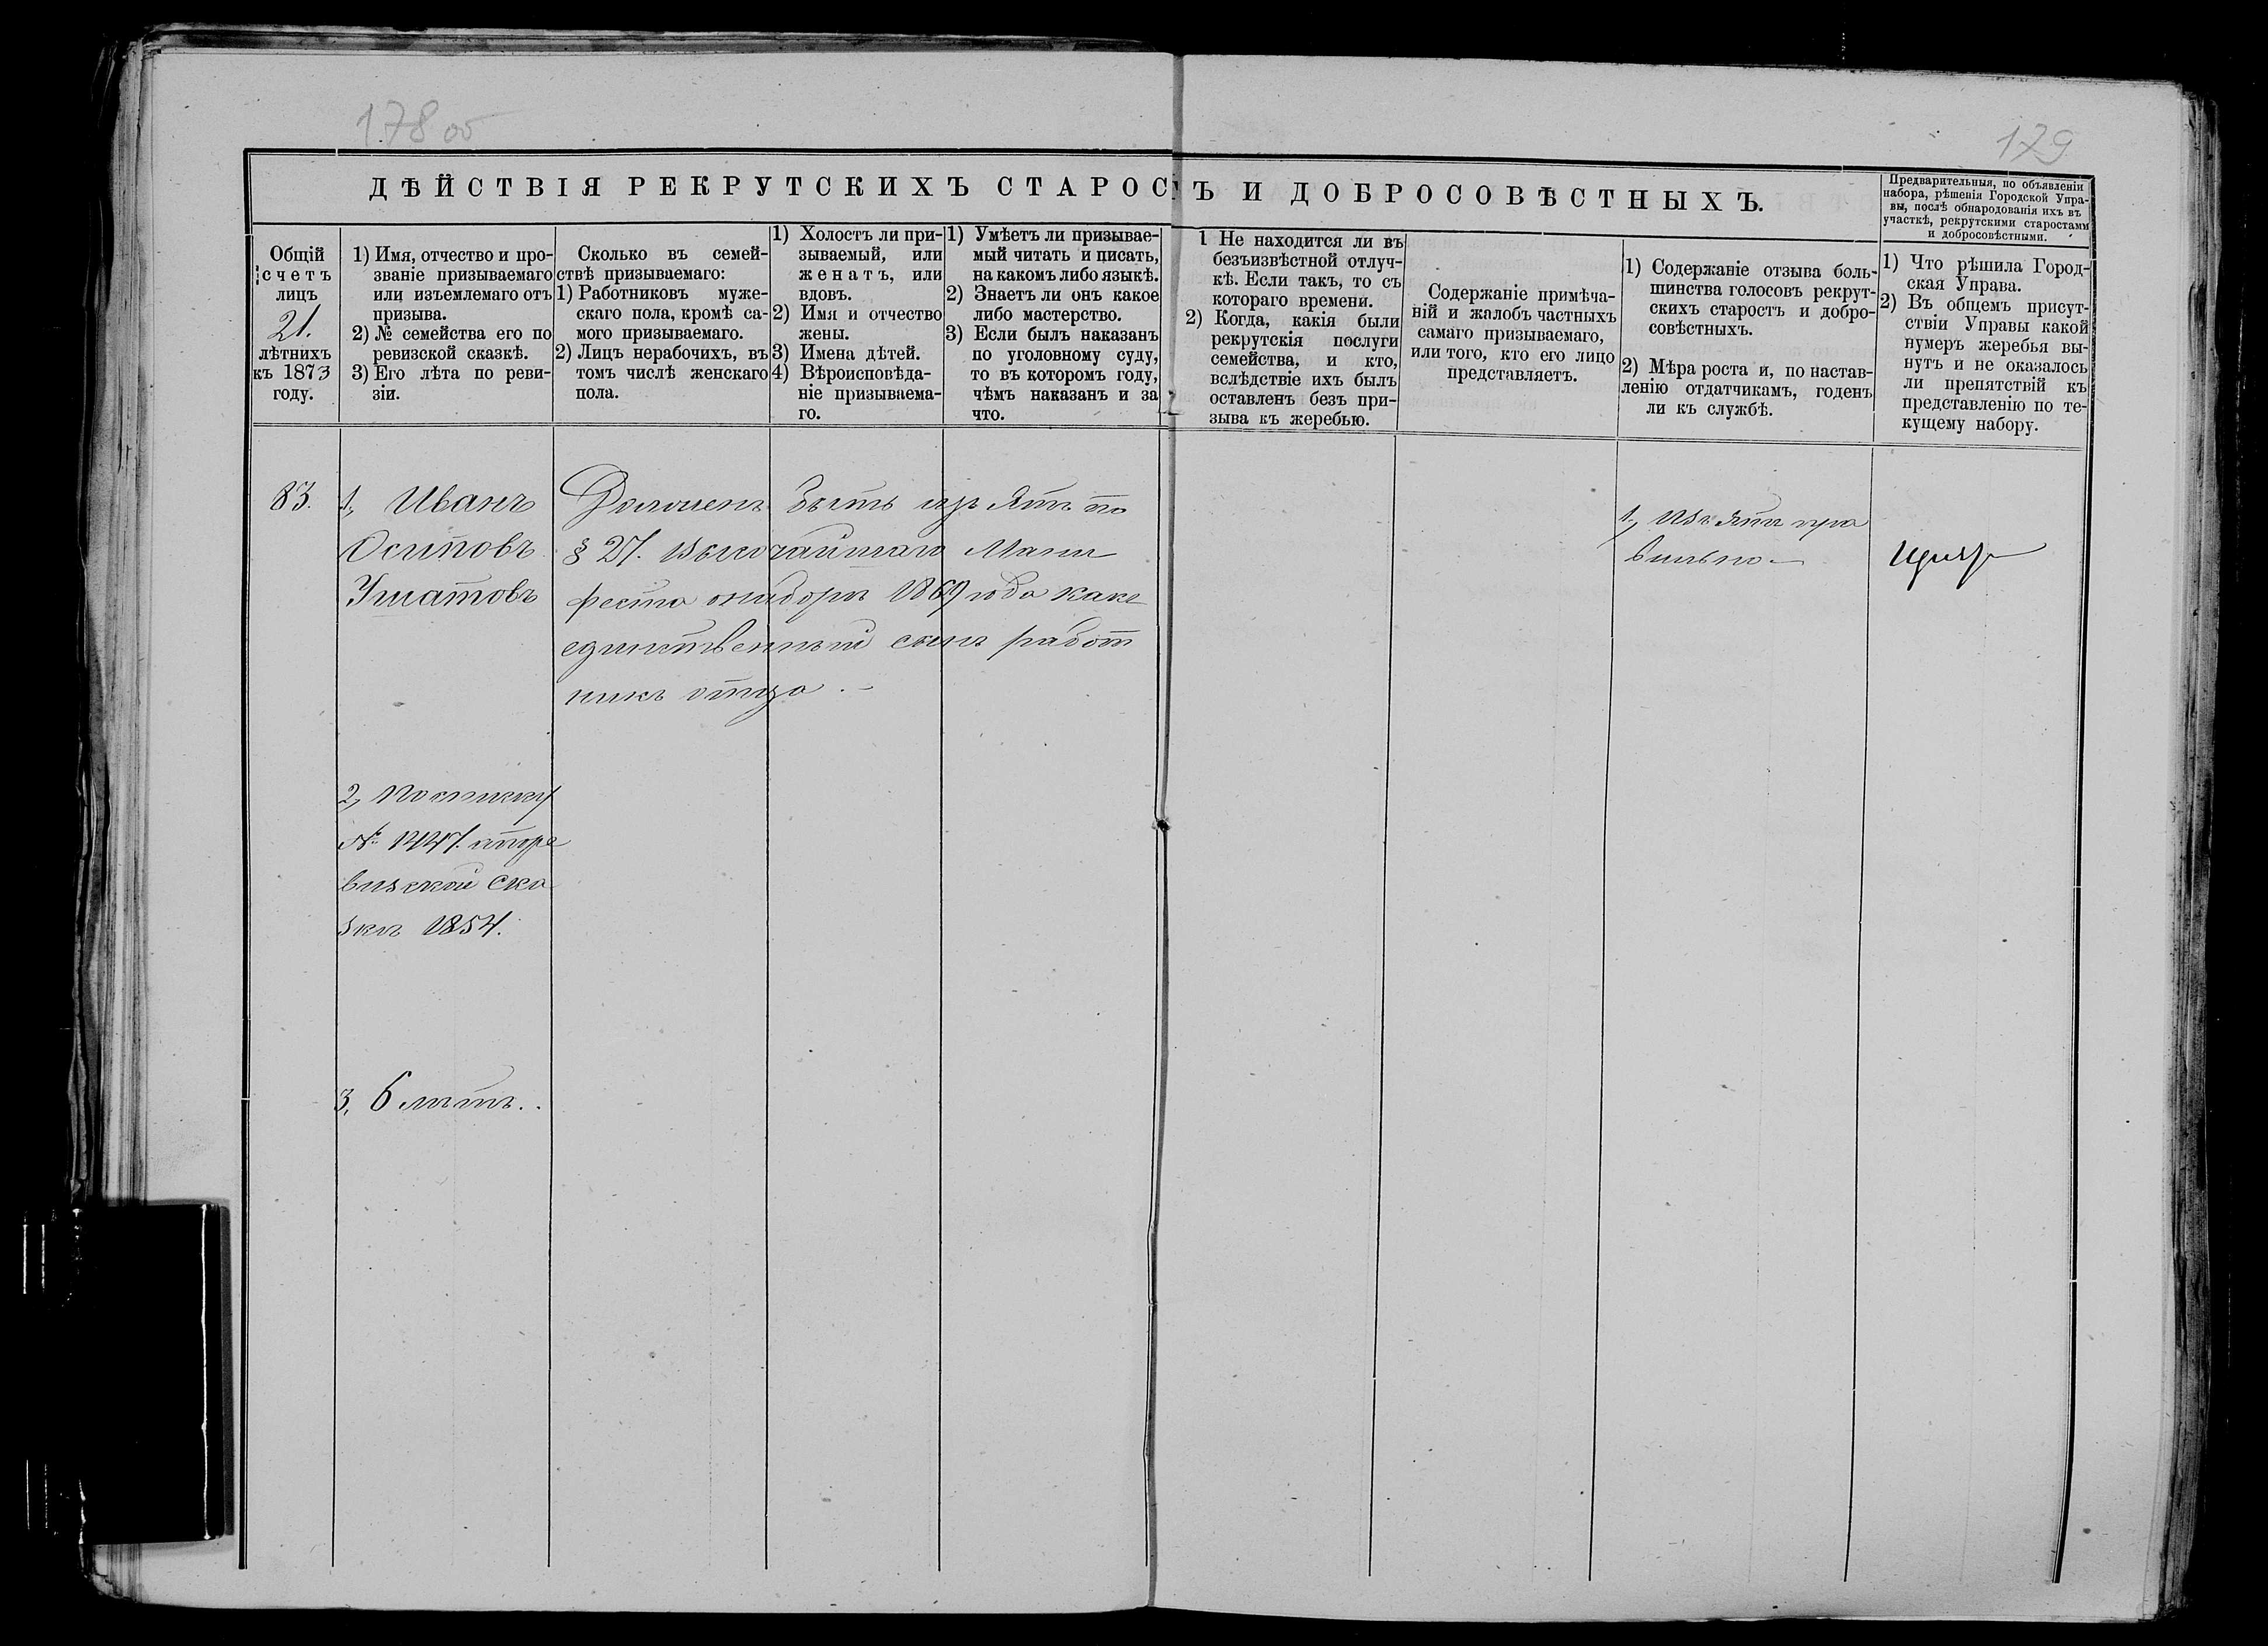 178 об
179
ДѢЙСТВІЯ РЕКРУТСКИХЪ СТАРОСТЪ И ДОБРОСОВѢСТНЫХЪ.
Предварительныя, по объявленіи
набора, рѣшенія Городской Упра-
вы, послѣ обнародованія ихъ въ
участкѣ, рекрутскими старостами
и добросовѣстными.
Общій
счетъ
лицъ
21.
лѣтнихъ
къ 1873
году.
1) Имя, отчество и про-
званіе призываемаго
или изъемлемаго отъ
призыва.
2) № семейства его по
ревизской сказкѣ.
3) Его лѣта по реви-
зіи.
Сколько въ семей-
ствѣ призываемаго:
1) Работниковъ муже-
скаго пола, кромѣ са-
мого призываемаго.
2) Лицъ нерабочихъ, въ
томъ числѣ женскаго
пола.
1) Холостъ ли при-
зываемый, или
женатъ, или
вдовъ.
2) Имя и отчество
жены.
3) Имена дѣтей.
4) Вѣроисповѣда-
ніе призываема-
го.
1) Умѣетъ ли призывае-
мый читать и писать,
на какомъ либо языкѣ.
2) Знаетъ ли онъ какое
либо мастерство.
3) Если былъ наказанъ
по уголовному суду,
то въ которомъ году,
чѣмъ наказанъ и за
что.
1 Не находится ли въ
безъизвѣстной отлуч-
кѣ. Если такъ, то съ
котораго времени.
2) Когда, какія были
рекрутскія послуги
семейства, и кто,
вслѣдствіе ихъ былъ
оставленъ безъ при-
зыва къ жеребью.
Содержаніе примѣча-
ній и жалобъ частныхъ
самаго призываемаго,
или того, кто его лицо
представляетъ.
1) Содержаніе отзыва боль-
шинства голосовъ рекрут-
скихъ старостъ и добро-
совѣстныхъ.
2) Мѣра роста и, по настав-
ленію отдатчикамъ, годенъ
ли къ службѣ.
1) Что рѣшила Город-
ская Управа.
2) Въ общемъ присут-
ствіи Управы какой
нумеръ жеребья вы-
нутъ и не оказалось
ли препятствій къ
представленію по те-
кущему набору.
83.
1, Иванъ
Осиповъ
Ушатовъ
Долженъ быть изъятъ по
§ 27. Высочайшаго Мани
феста о наборѣ 1869 года какъ
единственный сынъ работ
никъ отца. –
1., Изъятъ пра
вильно –
2, По списку
№ 1447. по ре
визской ска
зкѣ 1854.
3, 6 лѣтъ..